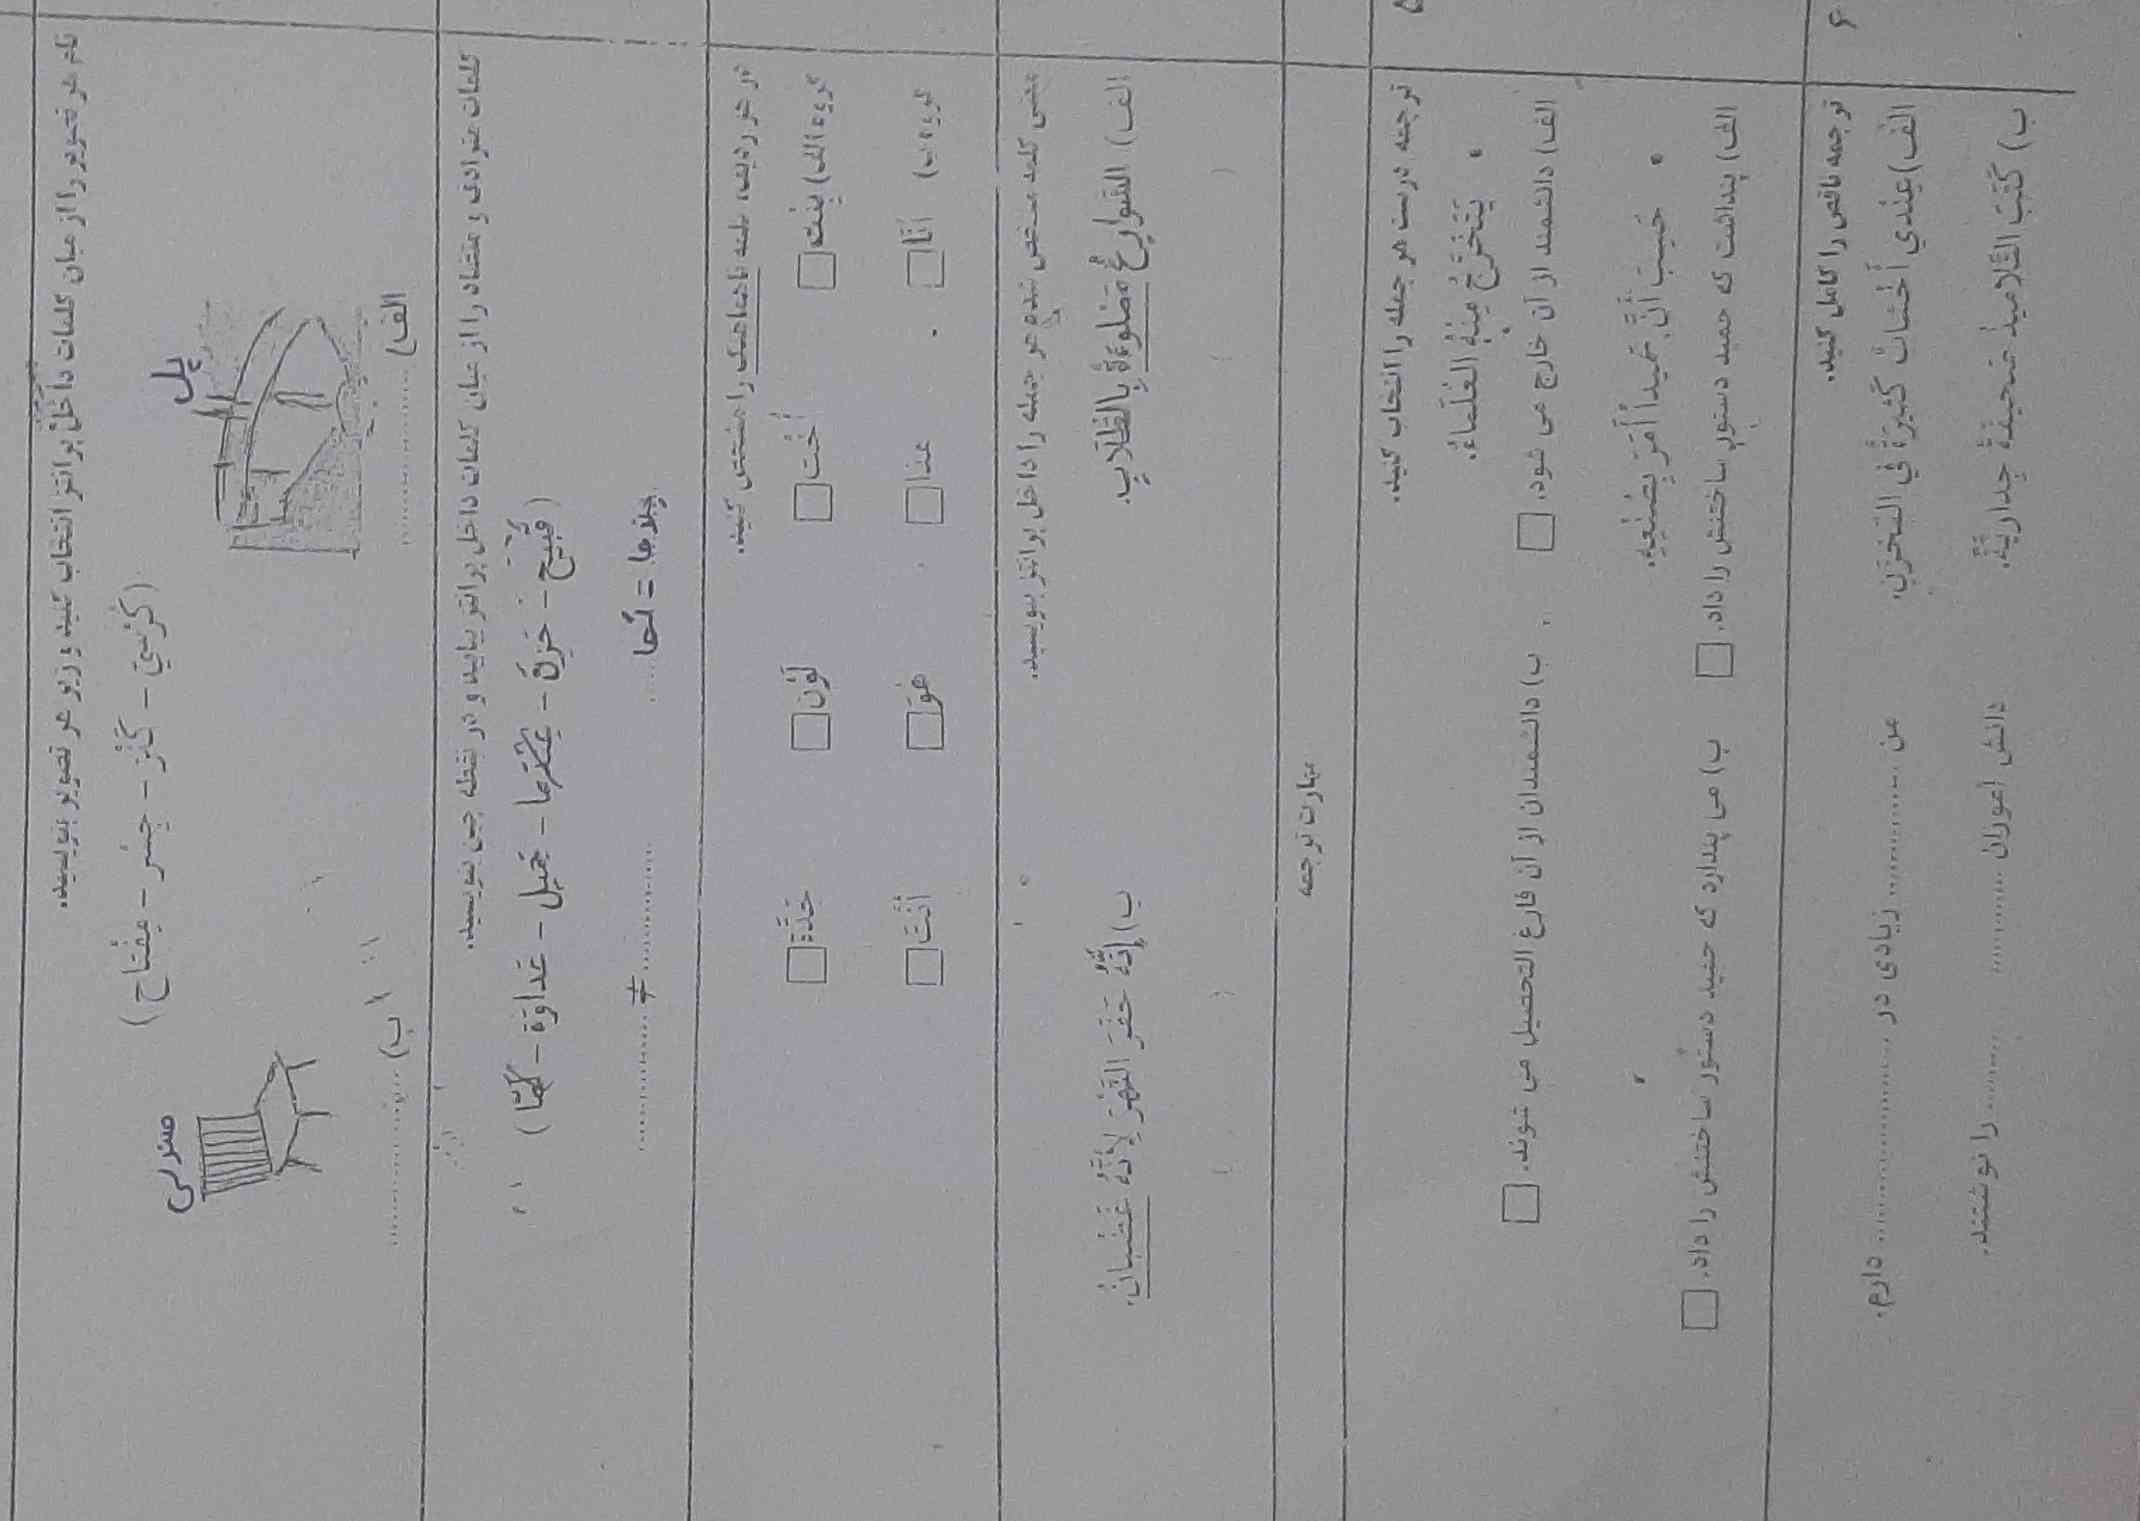 نام هر تصویر را از میان کلمات داخل پرانتز انتخاب کنید و زیر هر تصویر بنویسید.
(کُرْسِيّ - کَنْز - جِسْر - مِفْتَاح)
پل
صندلی
الف) ............
ب) ............
کلمات مترادف و متضاد را از میان کلمات داخل پرانتز بیابید و در نقطه چین بنویسید.
(قَبِیح - خِزانَة - - جَمِیل - عَداوَة - )
............ ≠ ............
در هر ردیف، کلمه ناهماهنگ را مشخص کنید.
گروه الف) بِنْت □ أُخْت □ لَوْن □ جَدَّة □
گروه ب) أَنَا □ هذا □ هُوَ □ أَنْتَ □
معنی کلمه مشخص شده هر جمله را داخل پرانتز بنویسید.
الف) الشَّوارِعُ مَمْلوءَةٌ بِالطُّلابِ.
ب) إِنَّهُ حَفَرَ النَّهْرَ لِأَنَّهُ غَضْبانُ.
( ) ( )
مهارت ترجمه
۵
ترجمه درست هر جمله را انتخاب کنید.
یَتَخَرَّجُ مِنْهُ الْعُلَماءُ.
الف) دانشمند از آن خارج می شود. □ ب) دانشمندان از آن فارغ التحصیل می شوند. □
حَسِبَ أَنَّ حَمیداً أَمَرَ بِصُنْعِهِ.
الف) پنداشت که حمید دستور ساختنش را داد. □ ب) می پندارد که حمید دستور ساختنش را داد. □
۶
ترجمه ناقص را کامل کنید.
الف) عِنْدي أَخْشابٌ کَثیرَةٌ فِي الْمَخْزَنِ. من ............ زیادی در ............ دارم.
ب) کَتَبَ التَّلامیذُ صَحیفَةً جِداریَّةً. دانش آموزان ............ ............ را نوشتند.